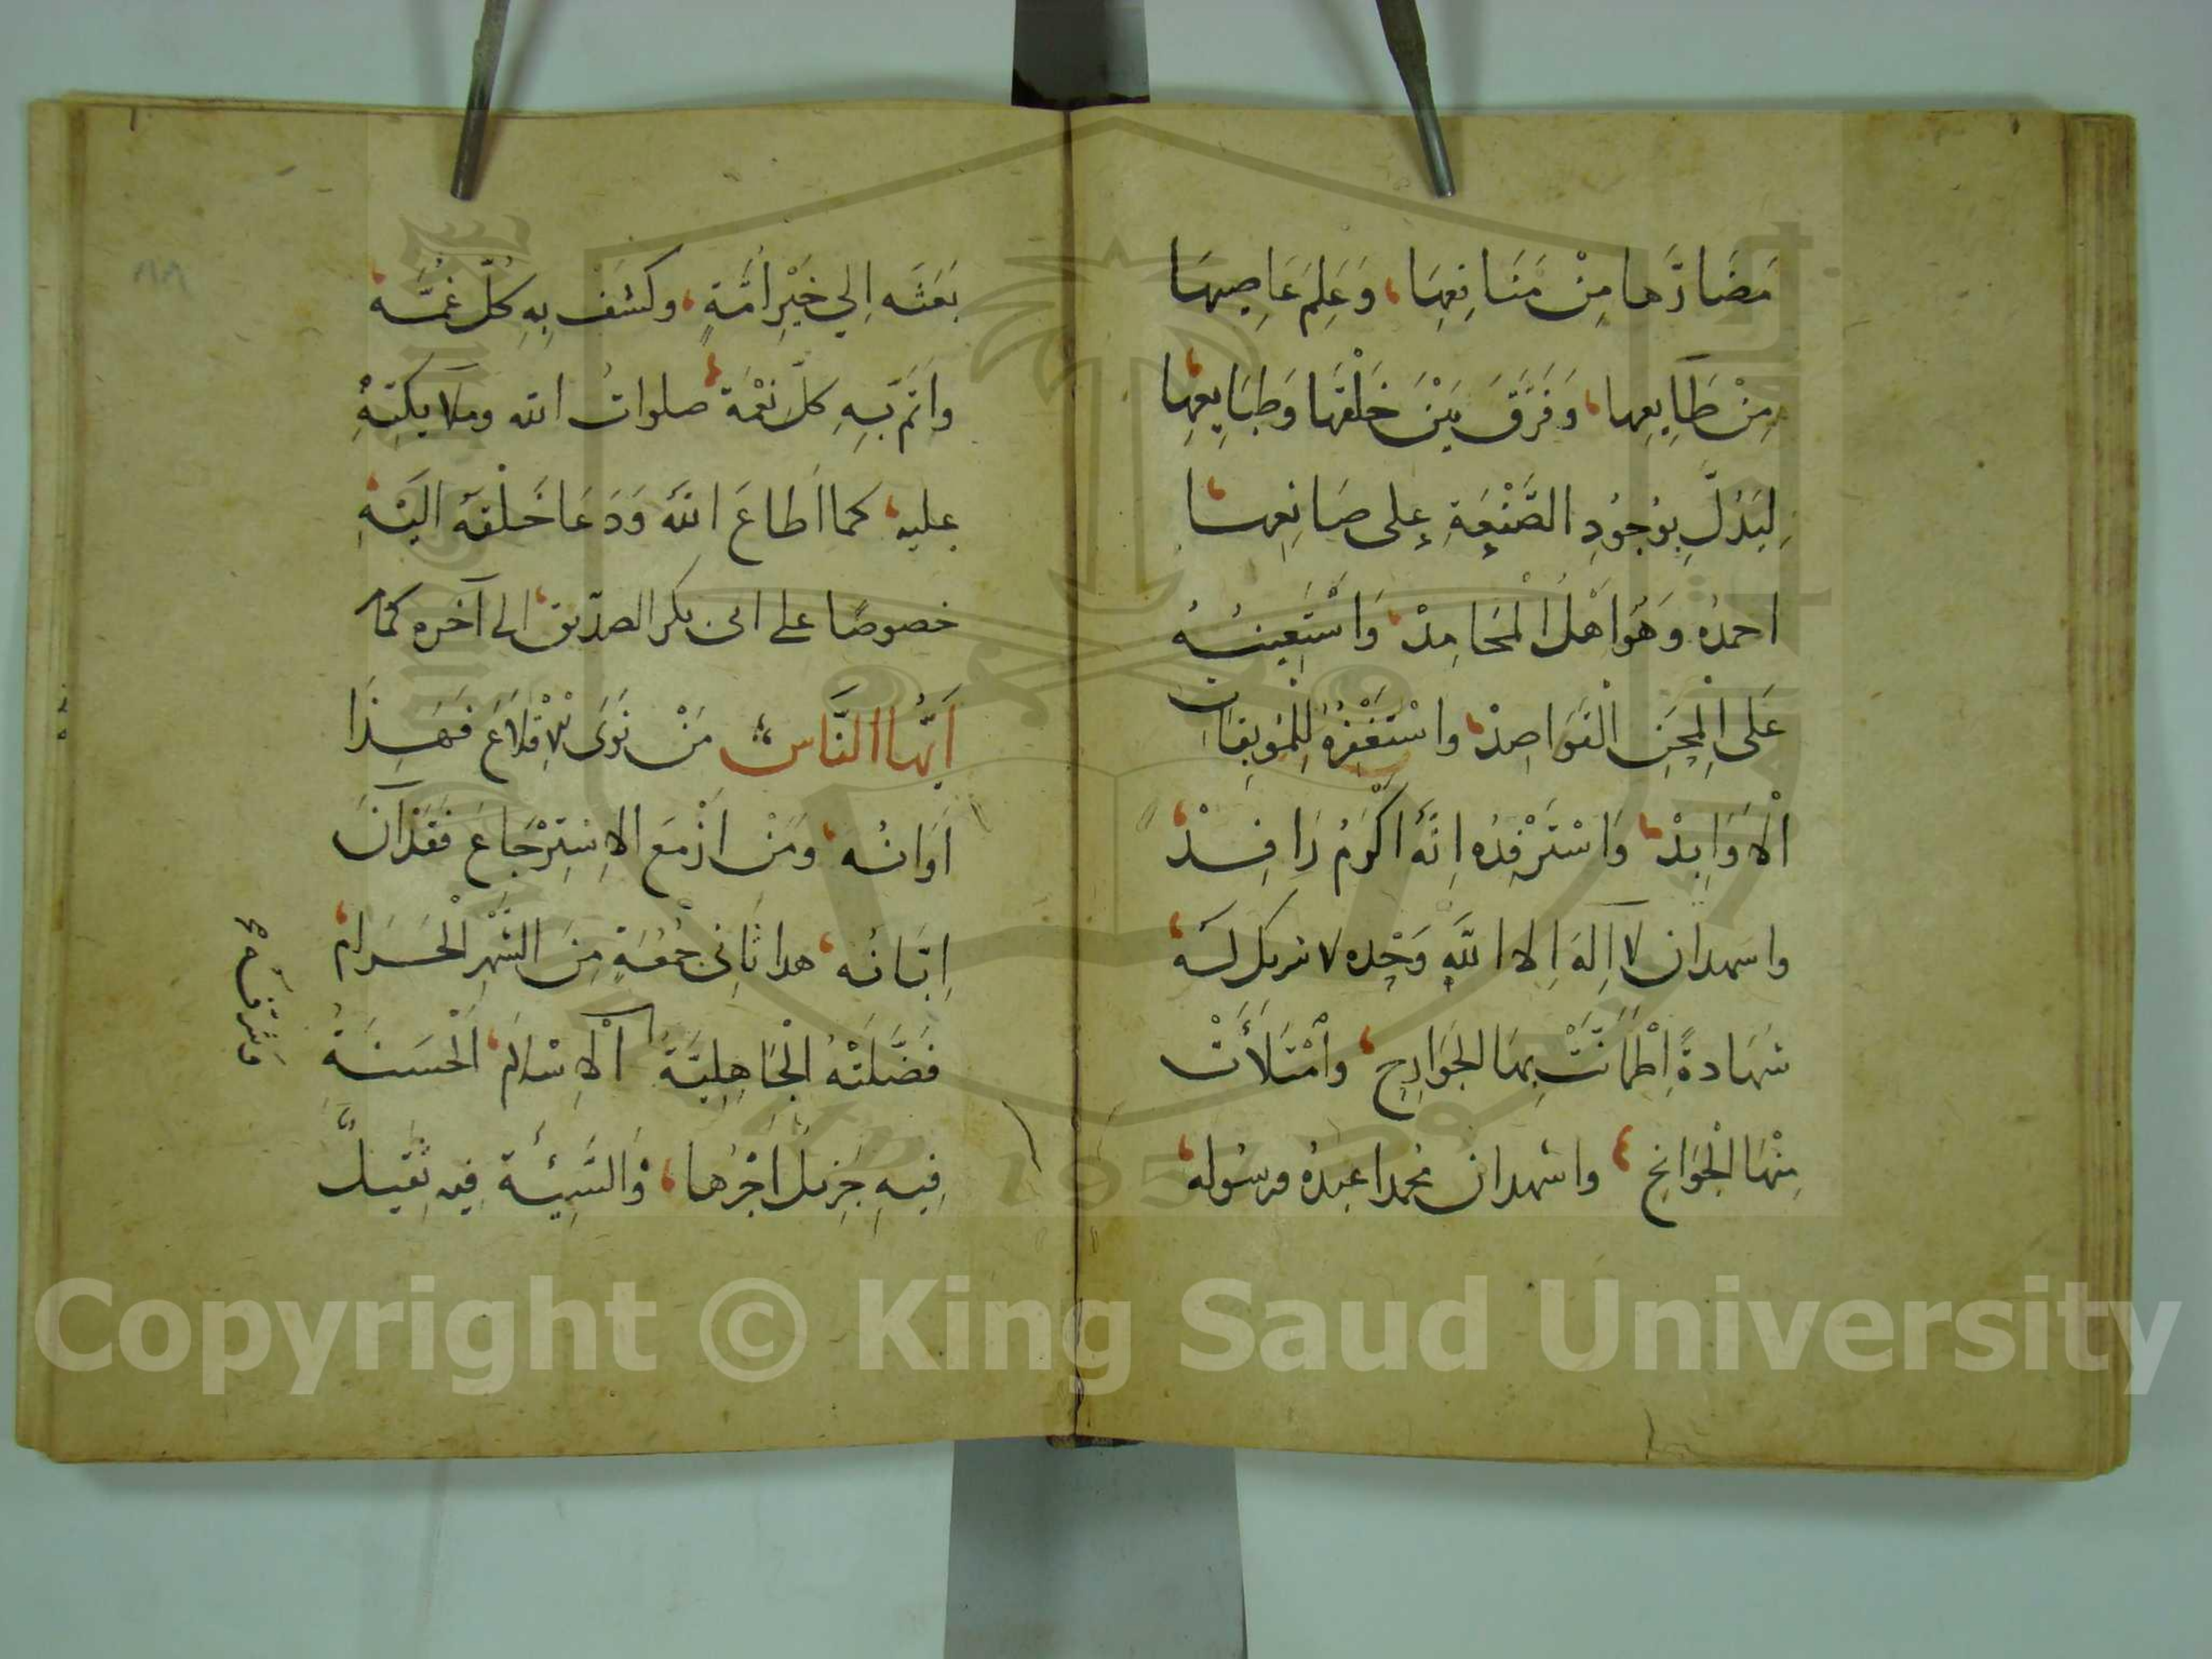 مَضَارَّها مِنْ مَنَافِعِهَا، وَعَلِمَ عَاصِيهَا
مِنْ طَايِعِها، وَفَرَّقَ بَيْنَ خَلْقِهَا وَطَبَايِعِهَا
لِيَدُلَّ بِوُجُودِ الصَّنْعَةِ على صَانِعِهَا
احمدُه وَهُوَ اهْلُ الْمَحَامِدْ، وَاسْتَعِينُهُ
عَلى الْمِحَنِ الْقَوَاصِدْ، واسْتَغْفِرُهُ لِلْمُوبِقَاتِ
الْاَوَابِدْ، وَاسْتَرْفِدُه اِنَّهُ اكْرَمُ رَافِدْ،
واشهد ان لا اِلَهَ اِلا اللَّهِ وَحْدِه لا شريك لَهُ،
شَهادةً اِطْمَانَّتْ بِهَا الْجَوَارِحِ، وامْتَلَأَتْ
مِنْهَا الْجَوَانِحِ، واشهد ان محمدا عبدُه ورسُوله،
بَعَثَه اِلي خَيْرِ اُمَّةٍ، وكشَفَ بِهِ كُلَّ غُمَّه،
واتَمَّ بِهِ كلَّ نِعْمَة، صلواتُ الله وملايكتِهِ
عليه، كما اَطاعَ اللهَ وَدَعَا خَلْقَهُ اليْهِ،
خصوصًا على ابى بكر الصدّيق، الى آخره كما
اَيُّهَا النَّاسُ مَنْ نَوَى الاِقْلاَعَ فَهَذَا
اَوَانُه، ومَنْ ازْمَعَ الاِسْتِرْجَاعَ فَقَدْ آنَ
اِبَّانُه، هدا ثَانِى جُمْعَةٍ مِنَ الشَّهْرِ الْحَرَام،
فَضَّلَتْهُ الْجَاهِلِيَّةُ الْاِسْلاَم، الْحَسَنَةُ
وشرّفه
فِيهِ جَزِيلٌ اَجْرُها، وَالسَّيِئَة فِيه ثَقِيلٌ
٨٨
Copyright © King Saud University
1957